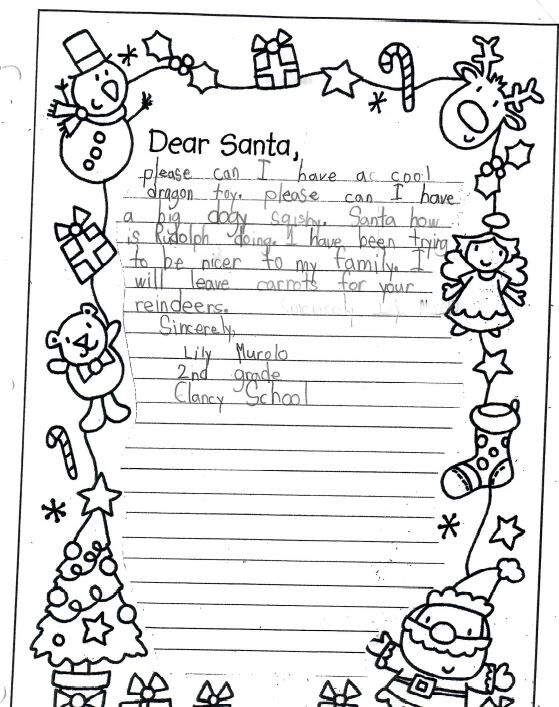 Dear Santa,
please can I have ac cool
dragon toy. please can I have
a big dogy sqishy. Santa how
is Rudolph doing. I have been trying
to be nicer to my family. I
will leave carrots for your
reindeers.
Sincerely,
Lily Murolo
2nd grade
Clancy School